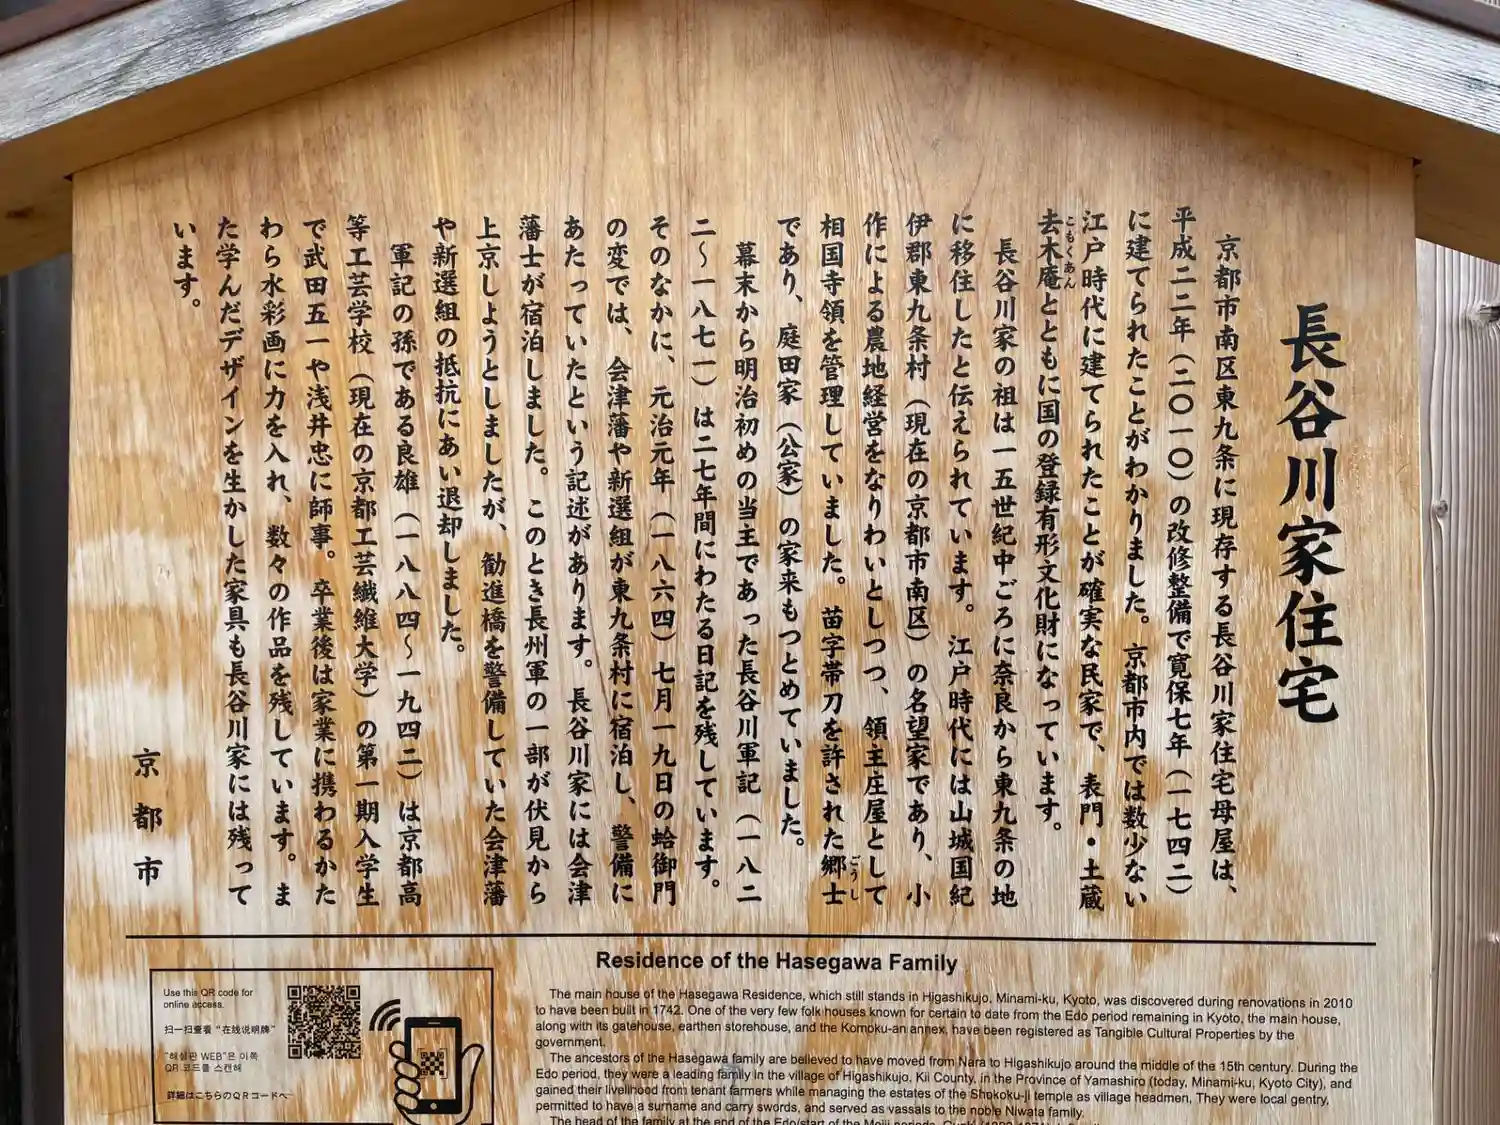 長谷川家住宅
京都市南区東九条に現存する長谷川家住宅母屋は、
平成二二年（二〇一〇）の改修整備で寛保七年（一七四二）
に建てられたことがわかりました。京都市内では数少ない
江戸時代に建てられたことが確実な民家で、表門・土蔵
去木庵とともに国の登録有形文化財になっています。
こもくあん
長谷川家の祖は一五世紀中ごろに奈良から東九条の地
に移住したと伝えられています。江戸時代には山城国紀
伊郡東九条村（現在の京都市南区）の名望家であり、小
作による農地経営をなりわいとしつつ、領主庄屋として
相国寺領を管理していました。苗字帯刀を許された郷士
ごうし
であり、庭田家（公家）の家来もつとめていました。
幕末から明治初めの当主であった長谷川軍記（一八二
二～一八七一）は二七年間にわたる日記を残しています。
そのなかに、元治元年（一八六四）七月一九日の蛤御門
の変では、会津藩や新選組が東九条村に宿泊し、警備に
あたっていたという記述があります。長谷川家には会津
藩士が宿泊しました。このとき長州軍の一部が伏見から
上京しようとしましたが、勧進橋を警備していた会津藩
や新選組の抵抗にあい退却しました。
軍記の孫である良雄（一八八四～一九四二）は京都高
等工芸学校（現在の京都工芸繊維大学）の第一期入学生
で武田五一や浅井忠に師事。卒業後は家業に携わるかた
わら水彩画に力を入れ、数々の作品を残しています。ま
た学んだデザインを生かした家具も長谷川家には残って
います。
京都市
Residence of the Hasegawa Family
The main house of the Hasegawa Residence, which still stands in Higashikujo, Minami-ku, Kyoto, was discovered during renovations in 2010
to have been built in 1742. One of the very few folk houses known for certain to date from the Edo period remaining in Kyoto, the main house,
along with its gatehouse, earthen storehouse, and the Komoku-an annex, have been registered as Tangible Cultural Properties by the
government.
The ancestors of the Hasegawa family are believed to have moved from Nara to Higashikujo around the middle of the 15th century. During the
Edo period, they were a leading family in the village of Higashikujo, Kii County, in the Province of Yamashiro (today, Minami-ku, Kyoto City), and
gained their livelihood from tenant farmers while managing the estates of the Shokoku-ji temple as village headmen, They were local gentry,
permitted to have a surname and carry swords, and served as vassals to the noble Niwata family.
The head of the family at the end of the Edo/start of the Meiji periods,
Use this QR code for
online access.
扫一扫查看“在线说明牌”
“해설판 WEB”은 이쪽
QR 코드를 스캔해
詳細はこちらのＱＲコードへ